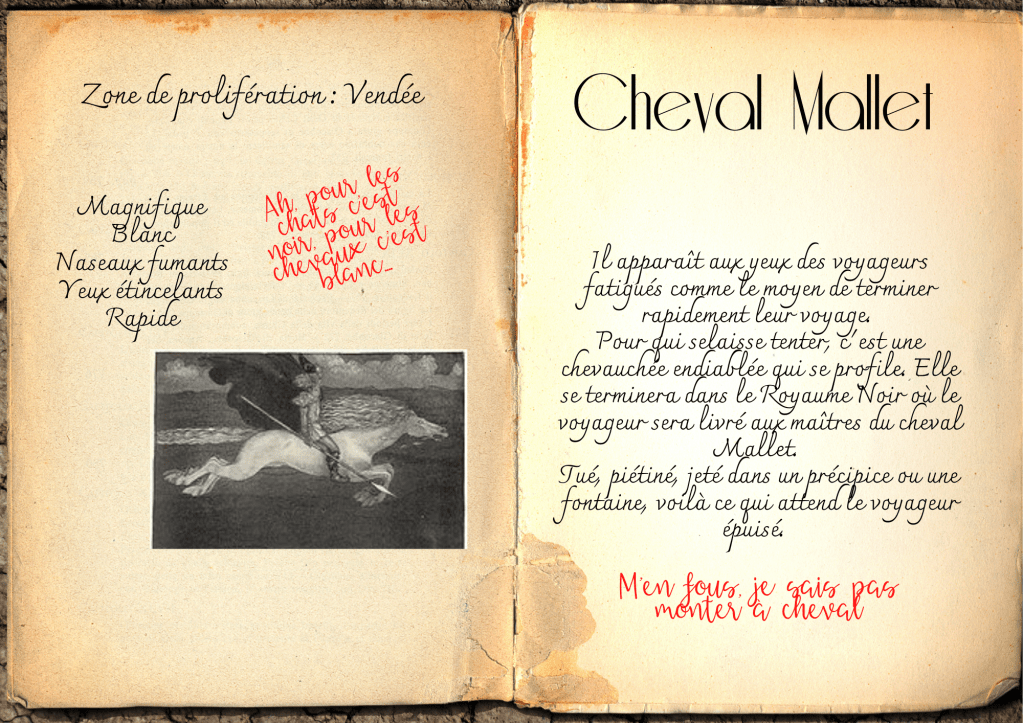 Zone de prolifération : Vendée
Magnifique
Blanc
Naseaux fumants
Yeux étincelants
Rapide
Ah, pour les
chats c'est
noir, pour les
chevaux c'est
blanc...
Cheval Mallet
Il apparaît aux yeux des voyageurs
fatigués comme le moyen de terminer
rapidement leur voyage.
Pour qui selaisse tenter, c'est une
chevauchée endiablée qui se profile. Elle
se terminera dans le Royaume Noir où le
voyageur sera livré aux maîtres du cheval
Mallet.
Tué, piétiné, jeté dans un précipice ou une
fontaine, voilà ce qui attend le voyageur
épuisé.
M'en fous, je sais pas
monter à cheval